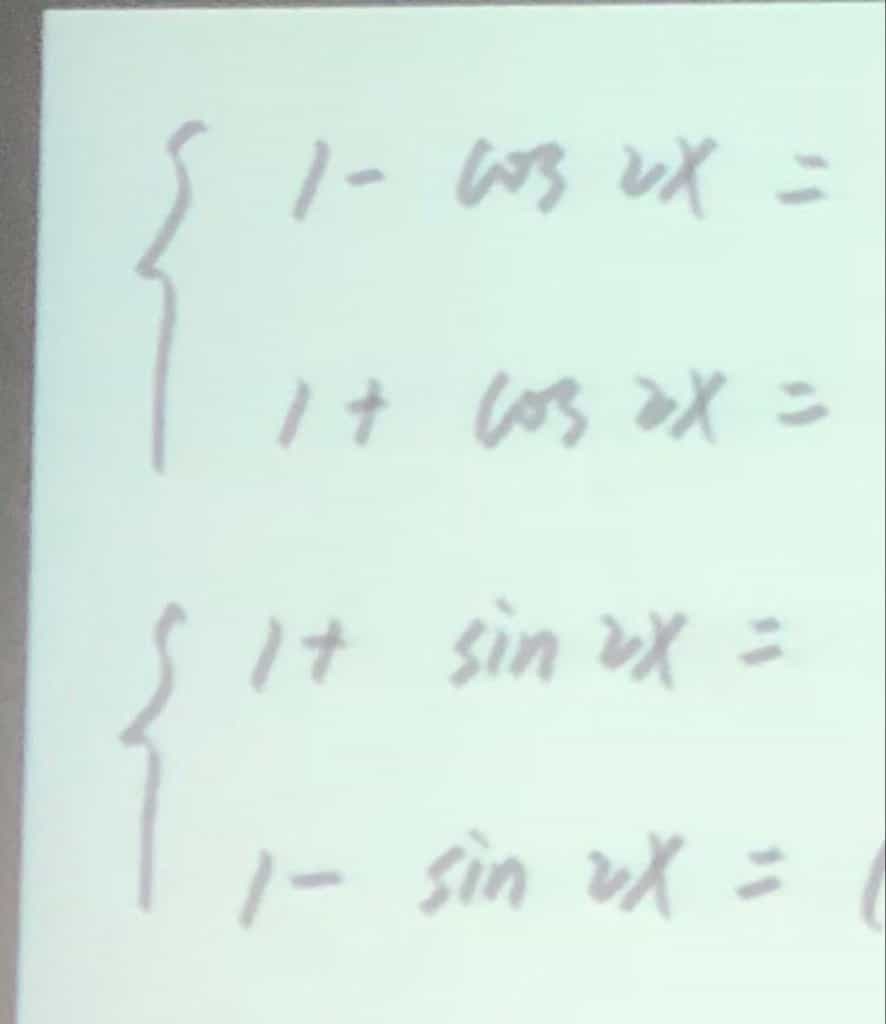 1 - cos 2x =
1 + cos 2x =
1 + sin 2x =
1 - sin 2x = (